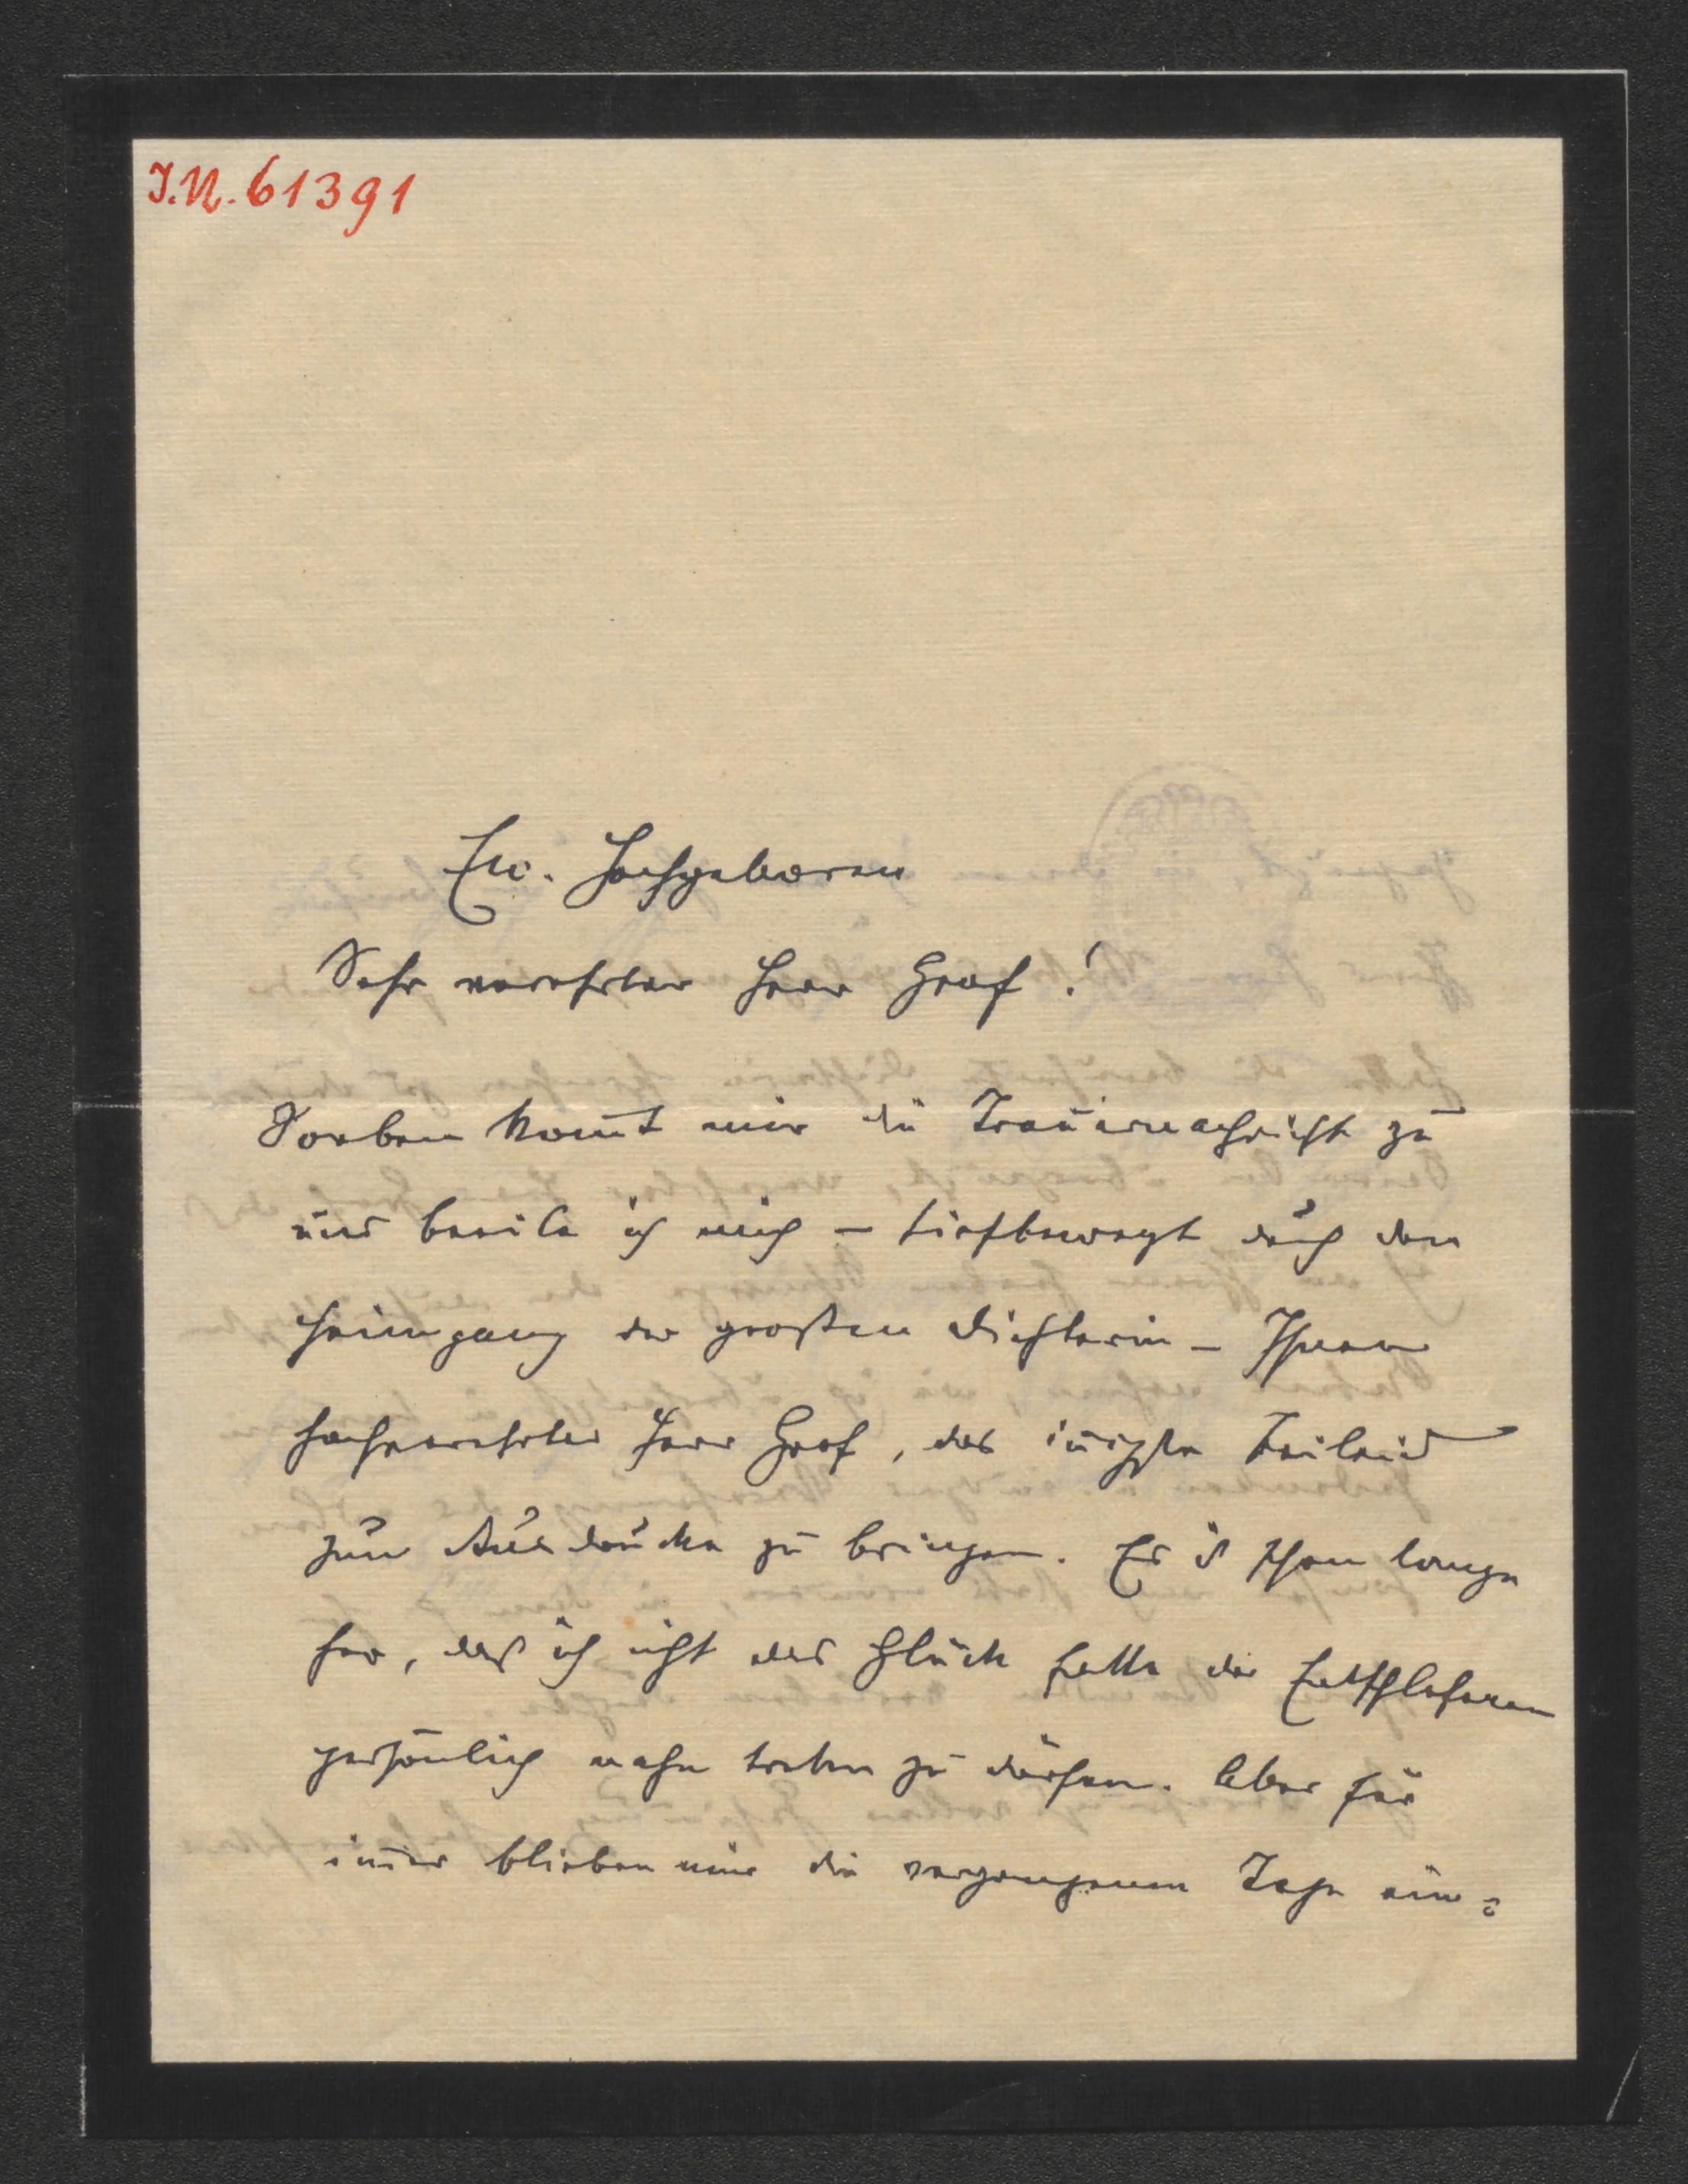 J.N. 61391
Ew. Hochgeboren
Sehr verehrter Herr Graf!
Soeben kom̄t mir die Trauernachricht zu
und beeile ich mich – tiefbewegt durch den
Heimgang der großen Dichterin – Ihnen
hochverehrter Herr Graf, das in̄igste Beileid
zum Ausdrucke zu bringen. Es ist schon lange
her, daß ich nicht das Glück hatte der Entschlafenen
persönlich nahe treten zu dürfen. Aber für
im̄er blieben mir die vergangenen Tage ein=